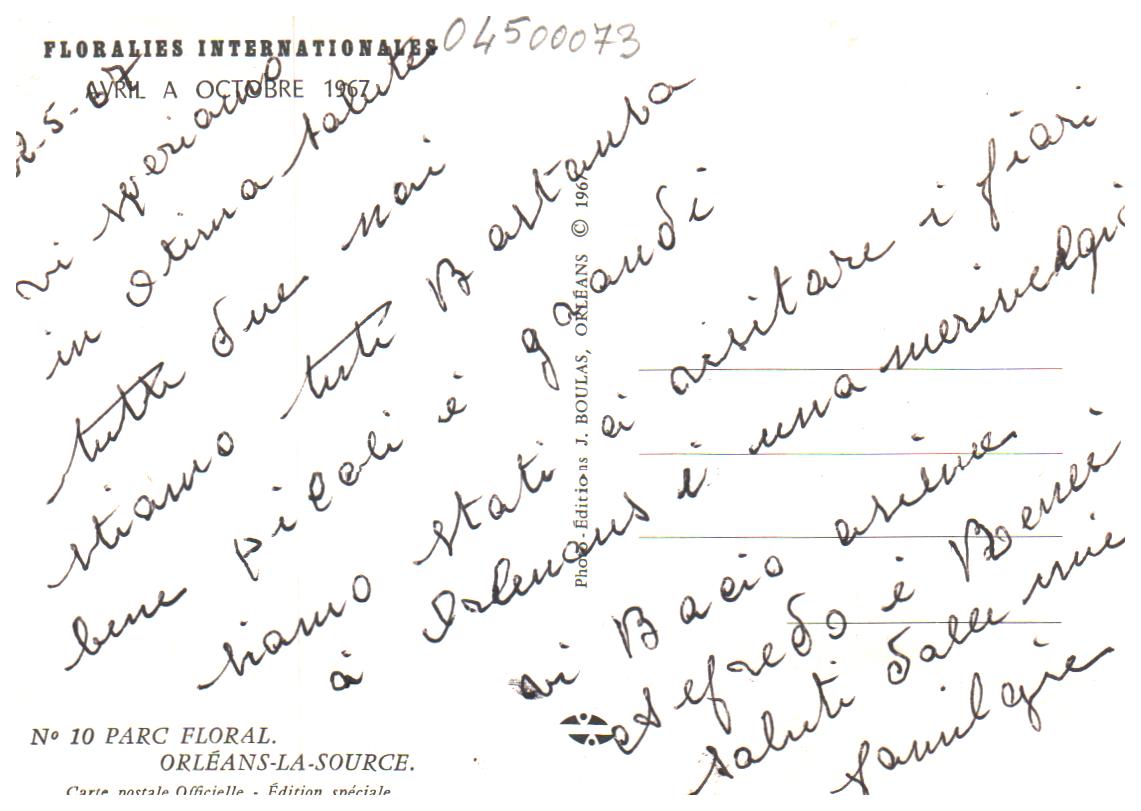 FLORALIES INTERNATIONALES
04500073
AVRIL A OCTOBRE 1967
2-5-67
vi speriamo
in otima salute
tutti due noi
stiamo tuti Bastanba
bene picoli e grandi
siamo stati a visitare i fiari
à Orlenans i una merivelgi
vi Bacio asieme
Alefredo e Benei
saluti dalle mie
familgie
Photo-Éditions J. BOULAS, ORLÉANS © 1967
Nº 10 PARC FLORAL.
ORLÉANS-LA-SOURCE.
Carte postale Officielle - Édition spéciale